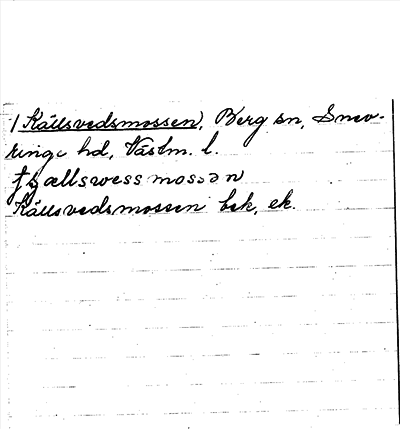 / Källsvedsmossen, Berg sn, Snev-
ringe hd, Västm. l.
ællswess mossən
Källsvedsmossen bek, ek.